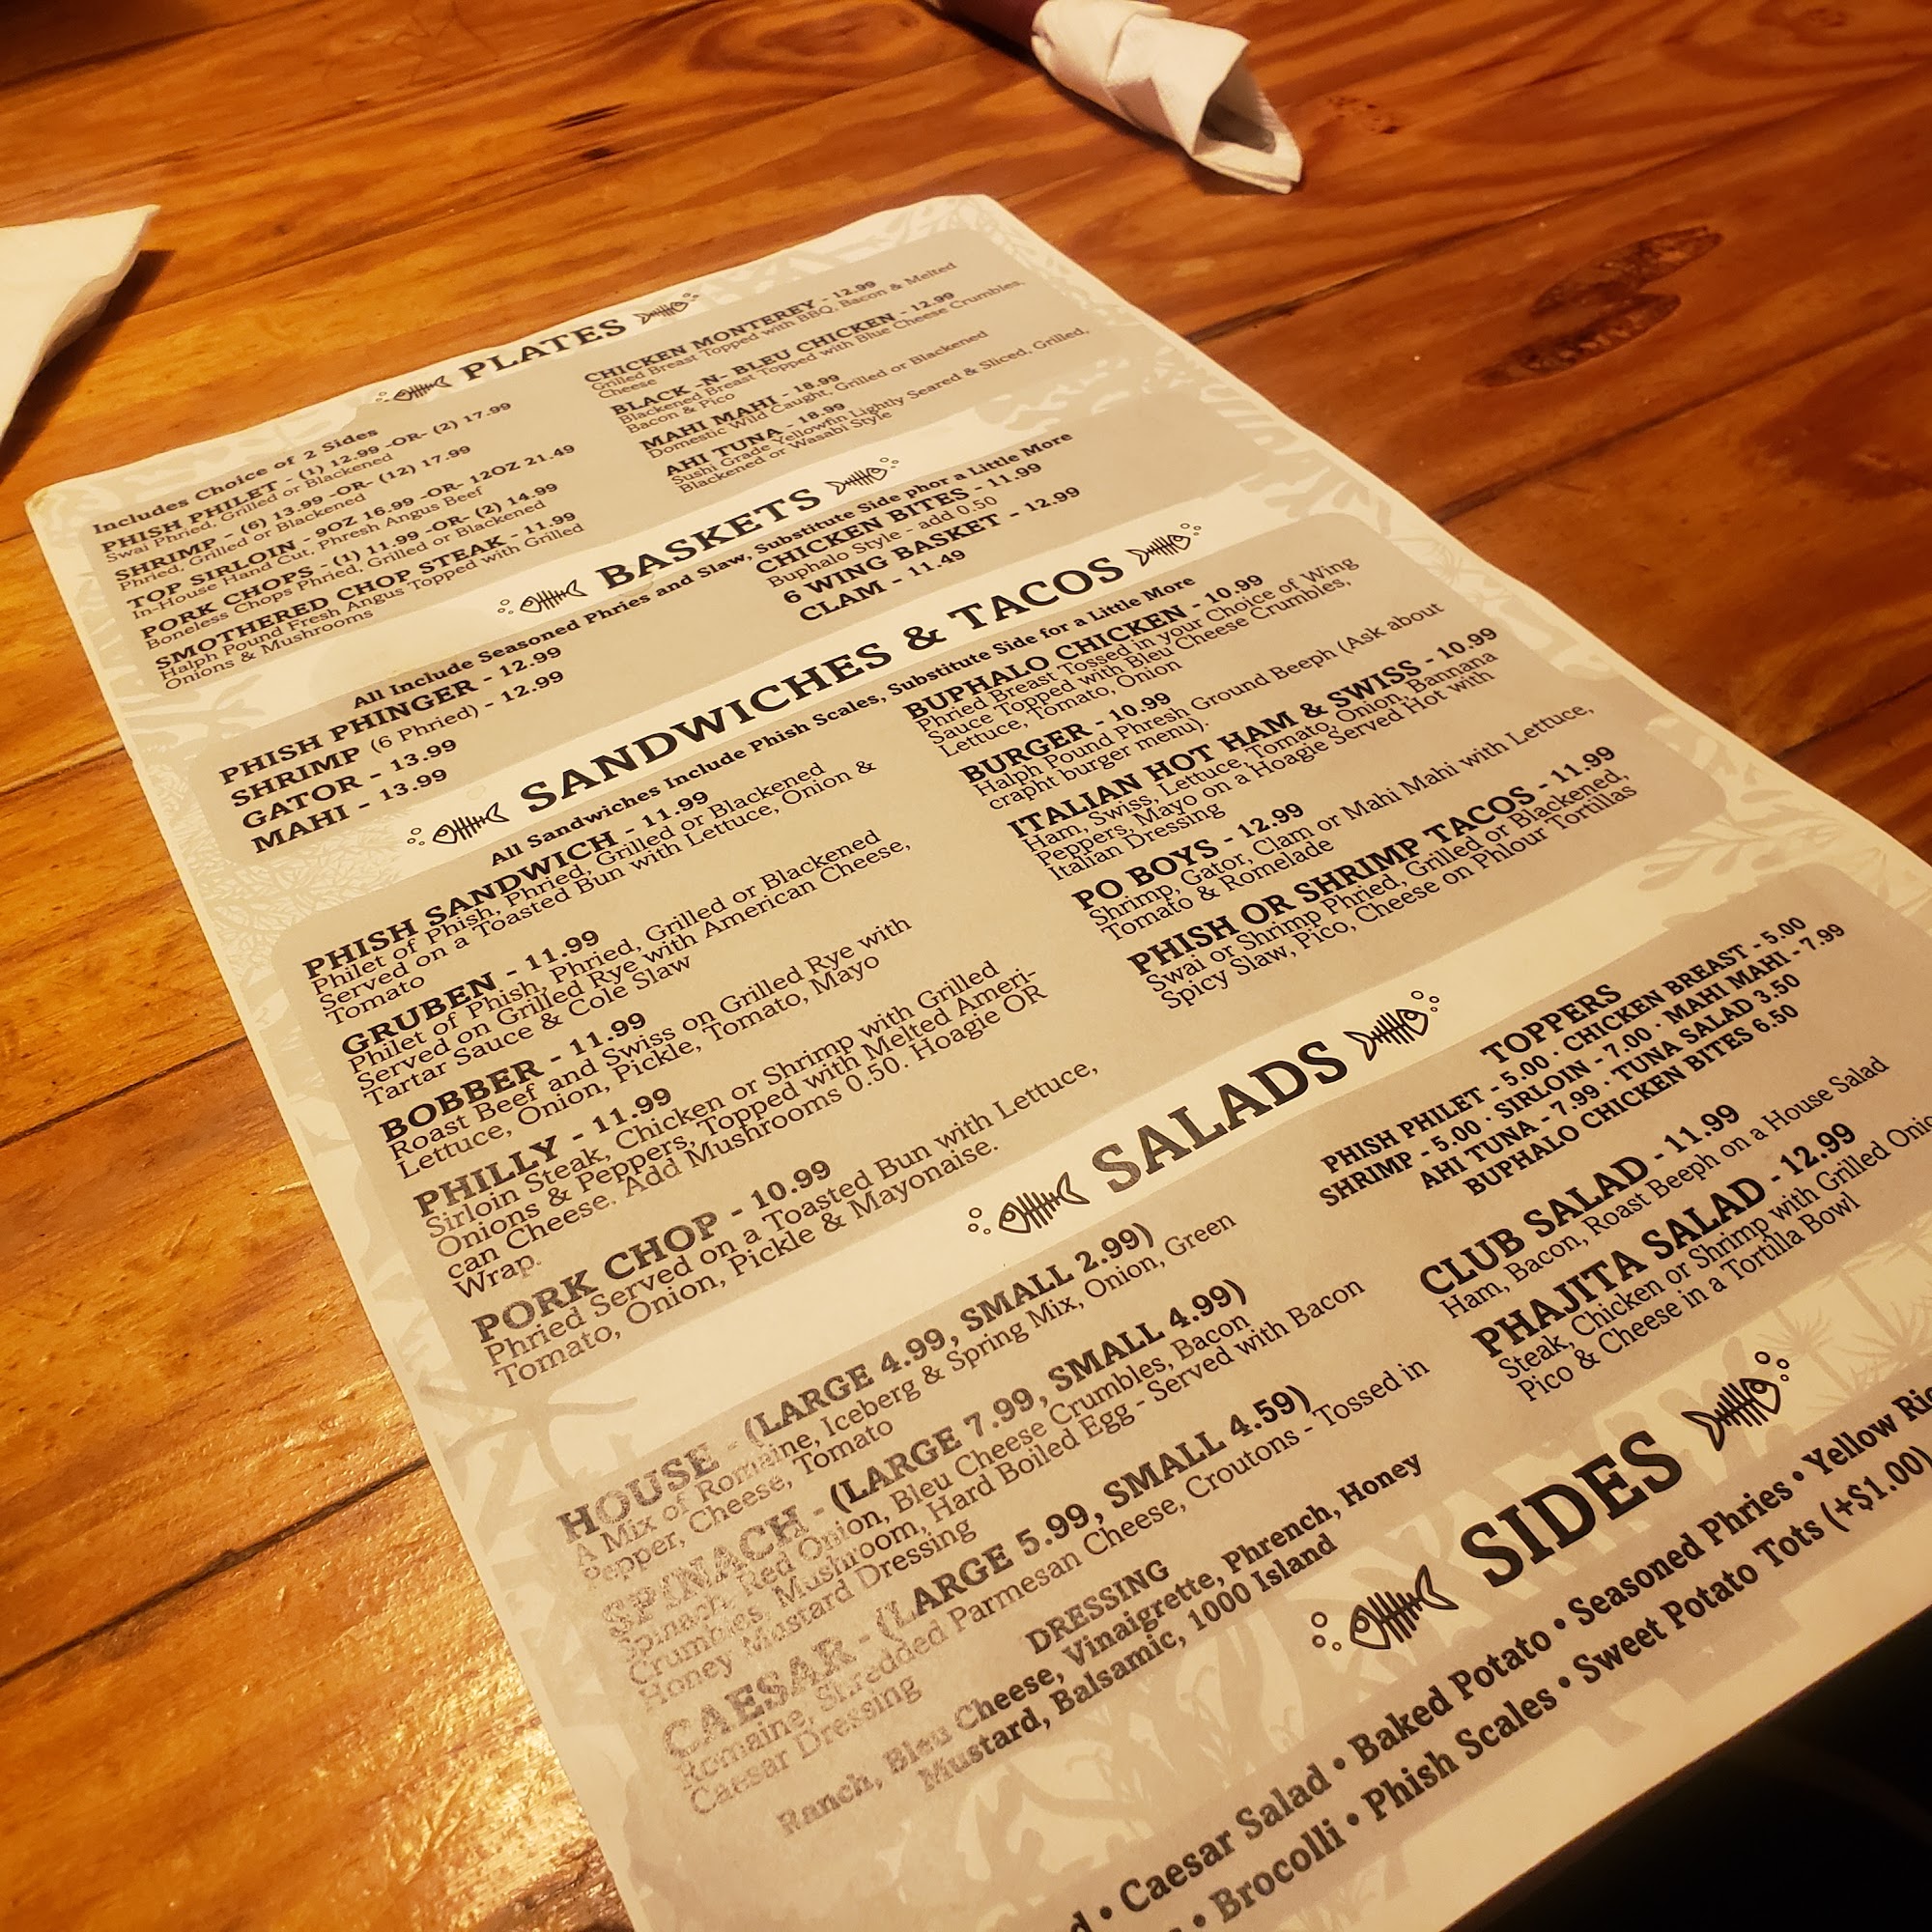 PLATES
Includes Choice of 2 Sides
PHISH PHILET - (1) 12.99 -OR- (2) 17.99
Swai Phried, Grilled or Blackened
SHRIMP - (6) 13.99 -OR- (12) 17.99
Phried, Grilled or Blackened
TOP SIRLOIN - 9OZ 16.99 -OR- 12OZ 21.49
In-House Hand Cut, Phresh Angus Beef
PORK CHOPS - (1) 11.99 -OR- (2) 14.99
Boneless Chops Phried, Grilled or Blackened
SMOTHERED CHOP STEAK - 11.99
Halph Pound Fresh Angus Topped with Grilled
Onions & Mushrooms
CHICKEN MONTEREY - 12.99
Grilled Breast Topped with BBQ, Bacon & Melted
Cheese
BLACK -N- BLEU CHICKEN - 12.99
Blackened Breast Topped with Blue Cheese Crumbles,
Bacon & Pico
MAHI MAHI - 18.99
Domestic Wild Caught, Grilled or Blackened
AHI TUNA - 18.99
Sushi Grade Yellowfin Lightly Seared & Sliced. Grilled,
Blackened or Wasabi Style
BASKETS
All Include Seasoned Phries and Slaw, Substitute Side phor a Little More
PHISH PHINGER - 12.99
SHRIMP (6 Phried) - 12.99
GATOR - 13.99
MAHI - 13.99
CHICKEN BITES - 11.99
Buphalo Style - add 0.50
6 WING BASKET - 12.99
CLAM - 11.49
SANDWICHES & TACOS
All Sandwiches Include Phish Scales, Substitute Side for a Little More
PHISH SANDWICH - 11.99
Philet of Phish, Phried, Grilled or Blackened
Served on a Toasted Bun with Lettuce, Onion &
Tomato
GRUBEN - 11.99
Philet of Phish, Phried, Grilled or Blackened
Served on Grilled Rye with American Cheese,
Tartar Sauce & Cole Slaw
BOBBER - 11.99
Roast Beef and Swiss on Grilled Rye with
Lettuce, Onion, Pickle, Tomato, Mayo
PHILLY - 11.99
Sirloin Steak, Chicken or Shrimp with Grilled
Onions & Peppers, Topped with Melted Ameri-
can Cheese. Add Mushrooms 0.50. Hoagie OR
Wrap.
PORK CHOP - 10.99
Phried Served on a Toasted Bun with Lettuce,
Tomato, Onion, Pickle & Mayonaise.
BUPHALO CHICKEN - 10.99
Phried Breast Tossed in your Choice of Wing
Sauce Topped with Bleu Cheese Crumbles,
Lettuce, Tomato, Onion
BURGER - 10.99
Halph Pound Phresh Ground Beeph (Ask about
crapht burger menu).
ITALIAN HOT HAM & SWISS - 10.99
Ham, Swiss, Lettuce, Tomato, Onion, Bannana
Peppers, Mayo on a Hoagie Served Hot with
Italian Dressing
PO BOYS - 12.99
Shrimp, Gator, Clam or Mahi Mahi with Lettuce,
Tomato & Romelade
PHISH OR SHRIMP TACOS - 11.99
Swai or Shrimp Phried, Grilled or Blackened,
Spicy Slaw, Pico, Cheese on Phlour Tortillas
SALADS
HOUSE - (LARGE 4.99, SMALL 2.99)
A Mix of Romaine, Iceberg & Spring Mix, Onion, Green
Pepper, Cheese, Tomato
SPINACH - (LARGE 7.99, SMALL 4.99)
Spinach, Red Onion, Bleu Cheese Crumbles, Bacon
Crumbles, Mushroom, Hard Boiled Egg - Served with Bacon
Honey Mustard Dressing
CAESAR - (LARGE 5.99, SMALL 4.59)
Romaine, Shredded Parmesan Cheese, Croutons - Tossed in
Caesar Dressing
DRESSING
Ranch, Bleu Cheese, Vinaigrette, Phrench, Honey
Mustard, Balsamic, 1000 Island
TOPPERS
PHISH PHILET - 5.00 · CHICKEN BREAST - 5.00
SHRIMP - 5.00 · SIRLOIN - 7.00 · MAHI MAHI - 7.99
AHI TUNA - 7.99 · TUNA SALAD 3.50
BUPHALO CHICKEN BITES 6.50
CLUB SALAD - 11.99
Ham, Bacon, Roast Beeph on a House Salad
PHAJITA SALAD - 12.99
Steak, Chicken or Shrimp with Grilled
Pico & Cheese in a Tortilla Bowl
SIDES
• Caesar Salad • Baked Potato • Seasoned Phries • Yellow
• Brocolli • Phish Scales • Sweet Potato Tots (+$1.00)